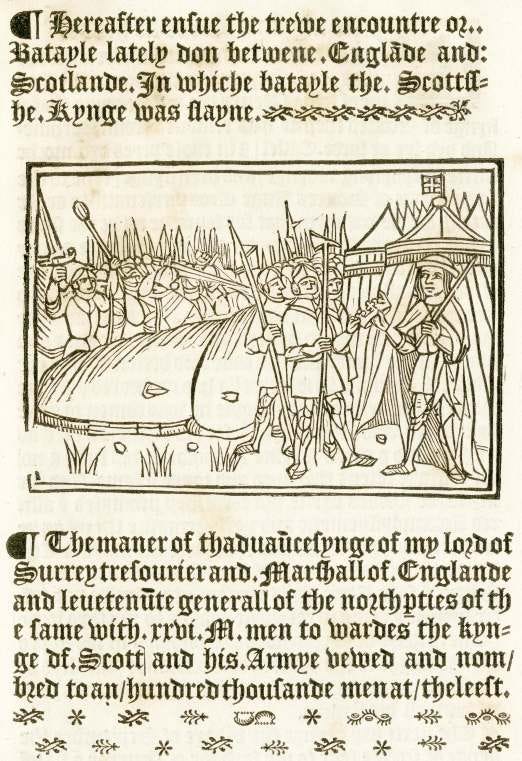 ¶ Hereafter ensue the trewe encountre or..
Batayle lately don betwene. Englāde and:
Scotlande. In whiche batayle the. Scottſ-
he. Kynge was ſlayne.
¶ The maner of thaduaūceſynge of my lord of
Surrey treſourier and. Marſhall of. Englande
and leuetenūte generall of the north p̄ties of th
e ſame with. xxvi. M. men to wardes the kyn-
ge df. Scott and his. Armye vewed and nom/
bred to an/hundred thouſande men at/the leeſt.